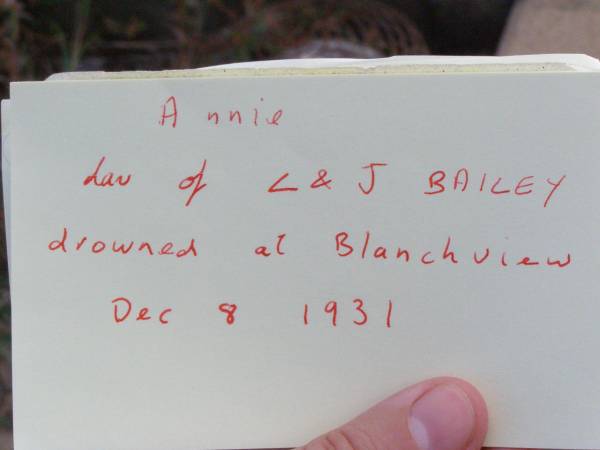 Annie
dau of L & J BAILEY
drowned at Blanchview
Dec 8 1931